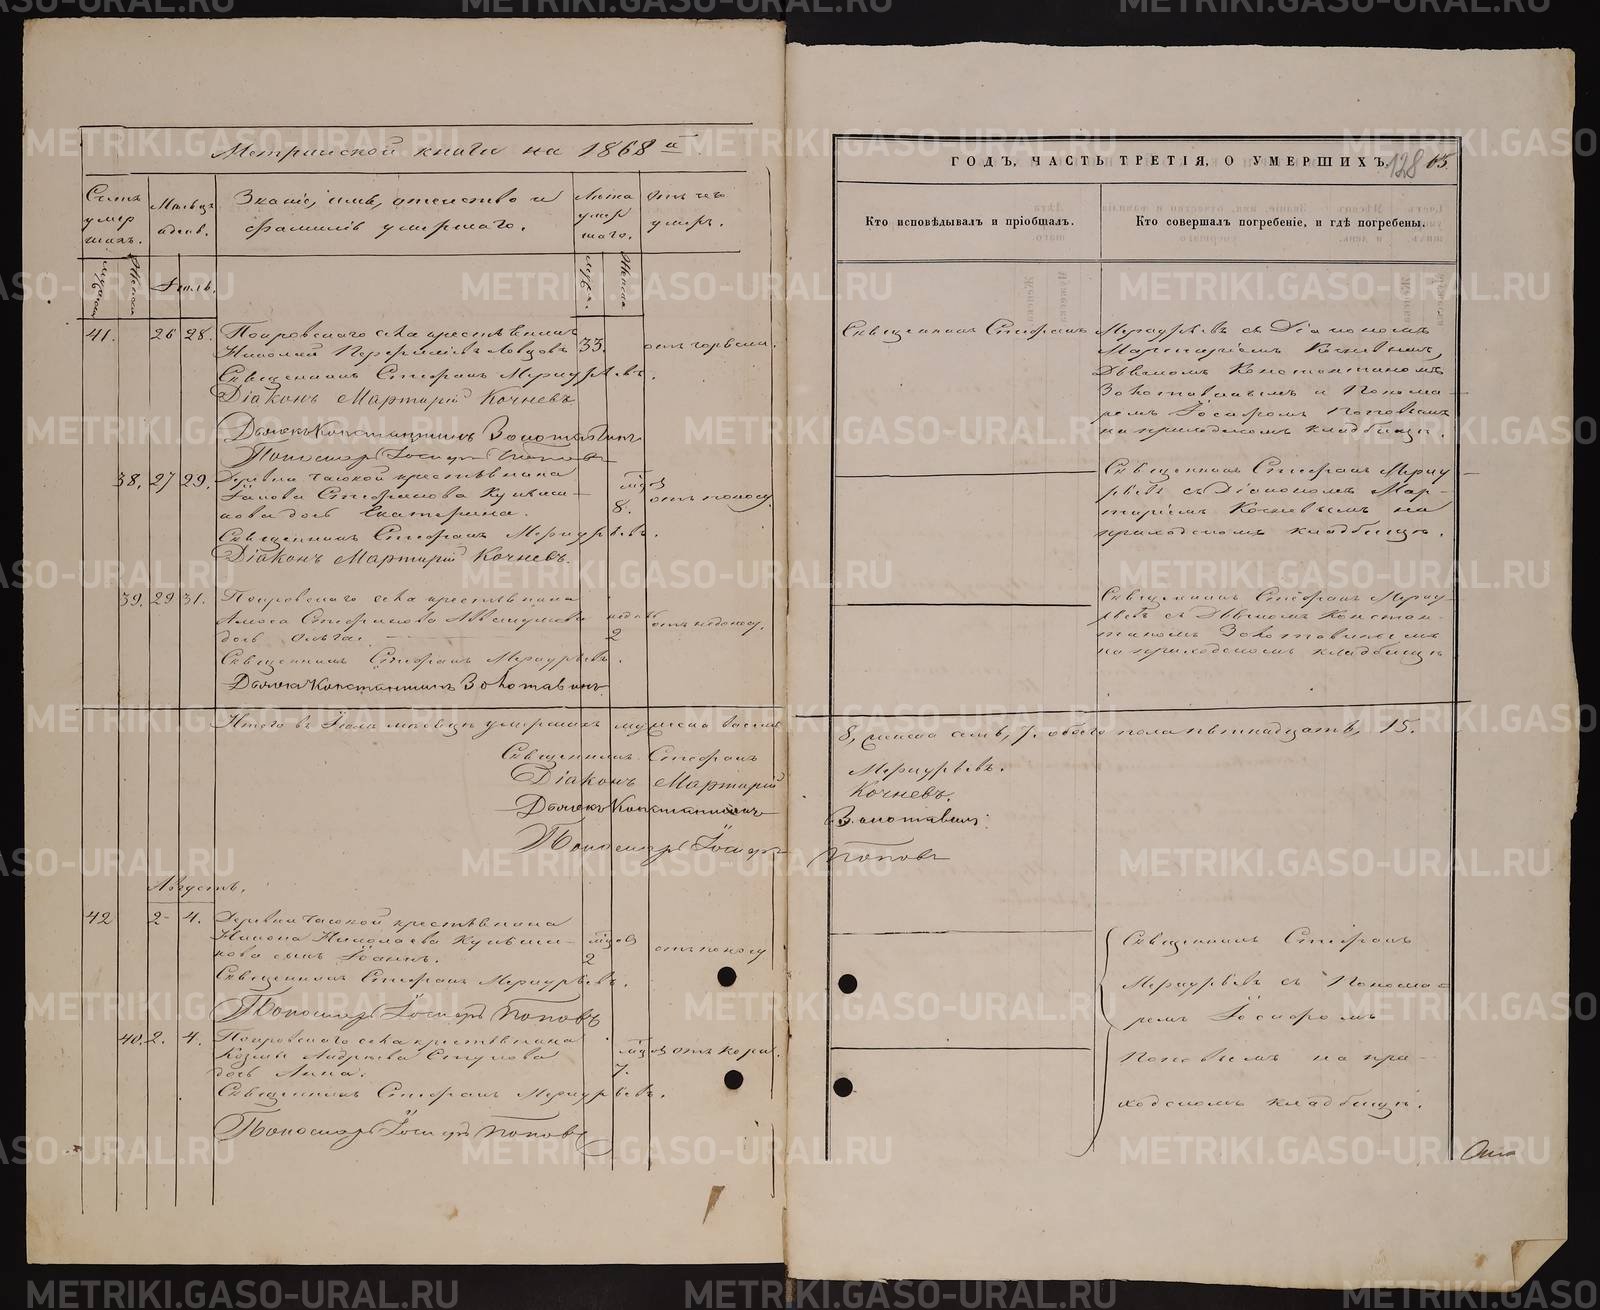 Метрической книги на 1868 й
Счетъ умер шихъ.
Мѣсяцъ и день.
Званіе, имя, отчество и фамилія умершаго.
Лѣта умер шаго.
Отъ чего умеръ.
Іюль.
41. 26 28. Покровскаго села крестьянинъ
Николай Перфильевъ Ловцовъ 33.
Священникъ Стефанъ Меркурьевъ.
Діаконъ Мартирій Кочневъ
Дьячекъ Константинъ Золотавинъ
Пономарь Іосифъ Поповъ
38. 27 29. Деревни Чаской крестьянина
Стефанова
нова дочь Екатерина. 8. отъ поносу.
Священникъ Стефанъ Меркурьевъ.
Діаконъ Мартирій Кочневъ.
39. 29 31. Покровскаго села крестьянина
Амоса Стефанова
дочь Ольга. 2
Священникъ Стефанъ Меркурьевъ.
Дьячекъ Константинъ Золотавинъ
Итого въ Іюлѣ мѣсяцѣ умершихъ мужеска восемь
Священникъ Стефанъ
Діаконъ Мартирій
Дьячекъ Константинъ
Пономарь Іосифъ
Августъ.
42 2 4. Деревни Чаской крестьянина
Николаева
нова сынъ Іоаннъ. 2 отъ поносу
Священникъ Стефанъ Меркурьевъ.
Пономарь Іосифъ Поповъ
40. 2. 4. Покровскаго села крестьянина
Козмы Андреева
дочь Анна. 7. отъ кори.
Священникъ Стефанъ Меркурьевъ.
Пономарь Іосифъ Поповъ
ГОДЪ, ЧАСТЬ ТРЕТІЯ, О УМЕРШИХЪ. 128 65.
Кто исповѣдывалъ и пріобщалъ.
Кто совершалъ погребеніе, и гдѣ погребены.
Священникъ Стефанъ Меркурьевъ съ Діакономъ
Мартиріемъ Кочневымъ,
Дьячкомъ Константиномъ
Золотавинымъ и Понома-
ремъ Іосифомъ Поповымъ
на приходскомъ кладбищѣ.
Священникъ Стефанъ Мерку-
рьевъ съ Діакономъ Мар-
тиріемъ Кочневымъ на
приходскомъ кладбищѣ.
Священникъ Стефанъ Мерку-
рьевъ съ Дьячкомъ Констан-
тиномъ Золотавинымъ
на приходскомъ кладбищѣ
8, женска семь, 7. обоего пола пятнадцать, 15.
Меркурьевъ.
Кочневъ.
Золотавинъ
Поповъ
Священникъ Стефанъ
Меркурьевъ съ Понома-
ремъ Іосифомъ
Поповымъ на при-
ходскомъ кладбищѣ.
METRIKI.GASO-URAL.RU